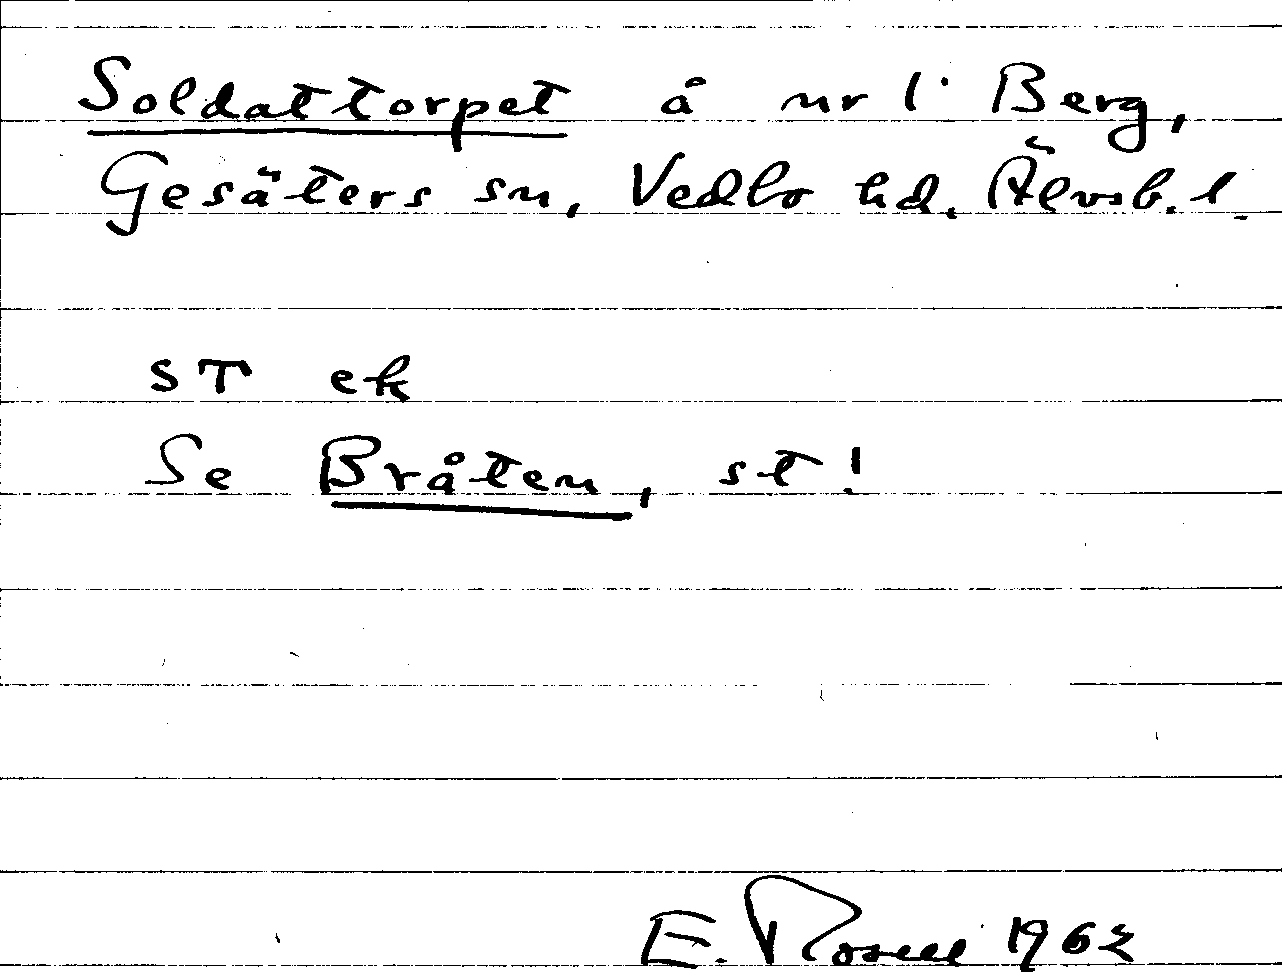 Soldattorpet å nr 1 Berg,
Gesäters sn, Vedbo hd. Älvsb. l.
ST ek
Se Bråten, st!
E. Rosell 1962